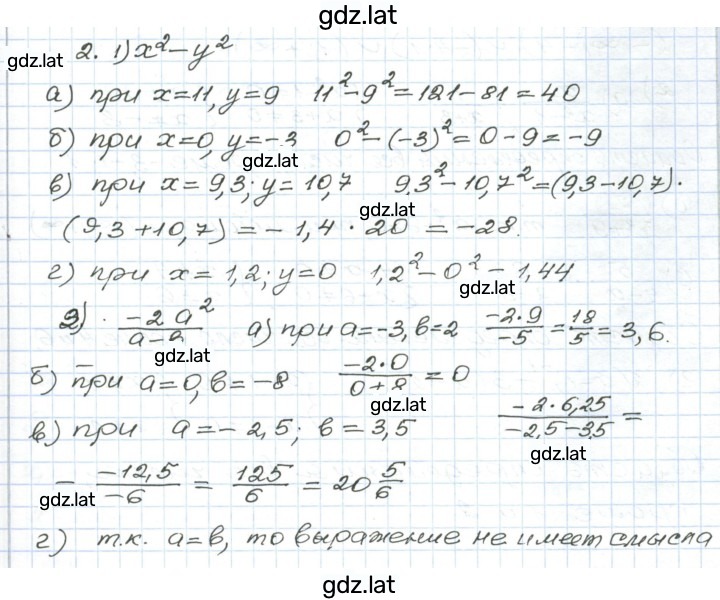 gdz.lat
gdz.lat 2. 1) x² − y²
а) при x=11, y=9 11² − 9² = 121 − 81 = 40
б) при x=0, y=−3 0² − (−3)² = 0 − 9 = −9
gdz.lat
в) при x = 9,3; y = 10,7 9.3² − 10,7² = (9,3 − 10,7) ·
gdz.lat
(9,3 + 10,7) = − 1,4 · 20 = −28.
г) при x = 1,2; y = 0 1,2² − 0² − 1,44
gdz.lat
2) −2a² / a−в а) при a=−3, в=2 −2·9 / −5 = 18/5 = 3,6.
gdz.lat
б) при a=0, в=−8 −2·0 / 0+8 = 0
gdz.lat
в) при a = − 2,5; в = 3,5 −2·6,25 / −2,5−3.5 =
gdz.lat
− −12,5 / −6 = 125/6 = 20 5/6
gdz.lat
г) т.к. a=в, то выражение не имеет смысла
gdz.lat